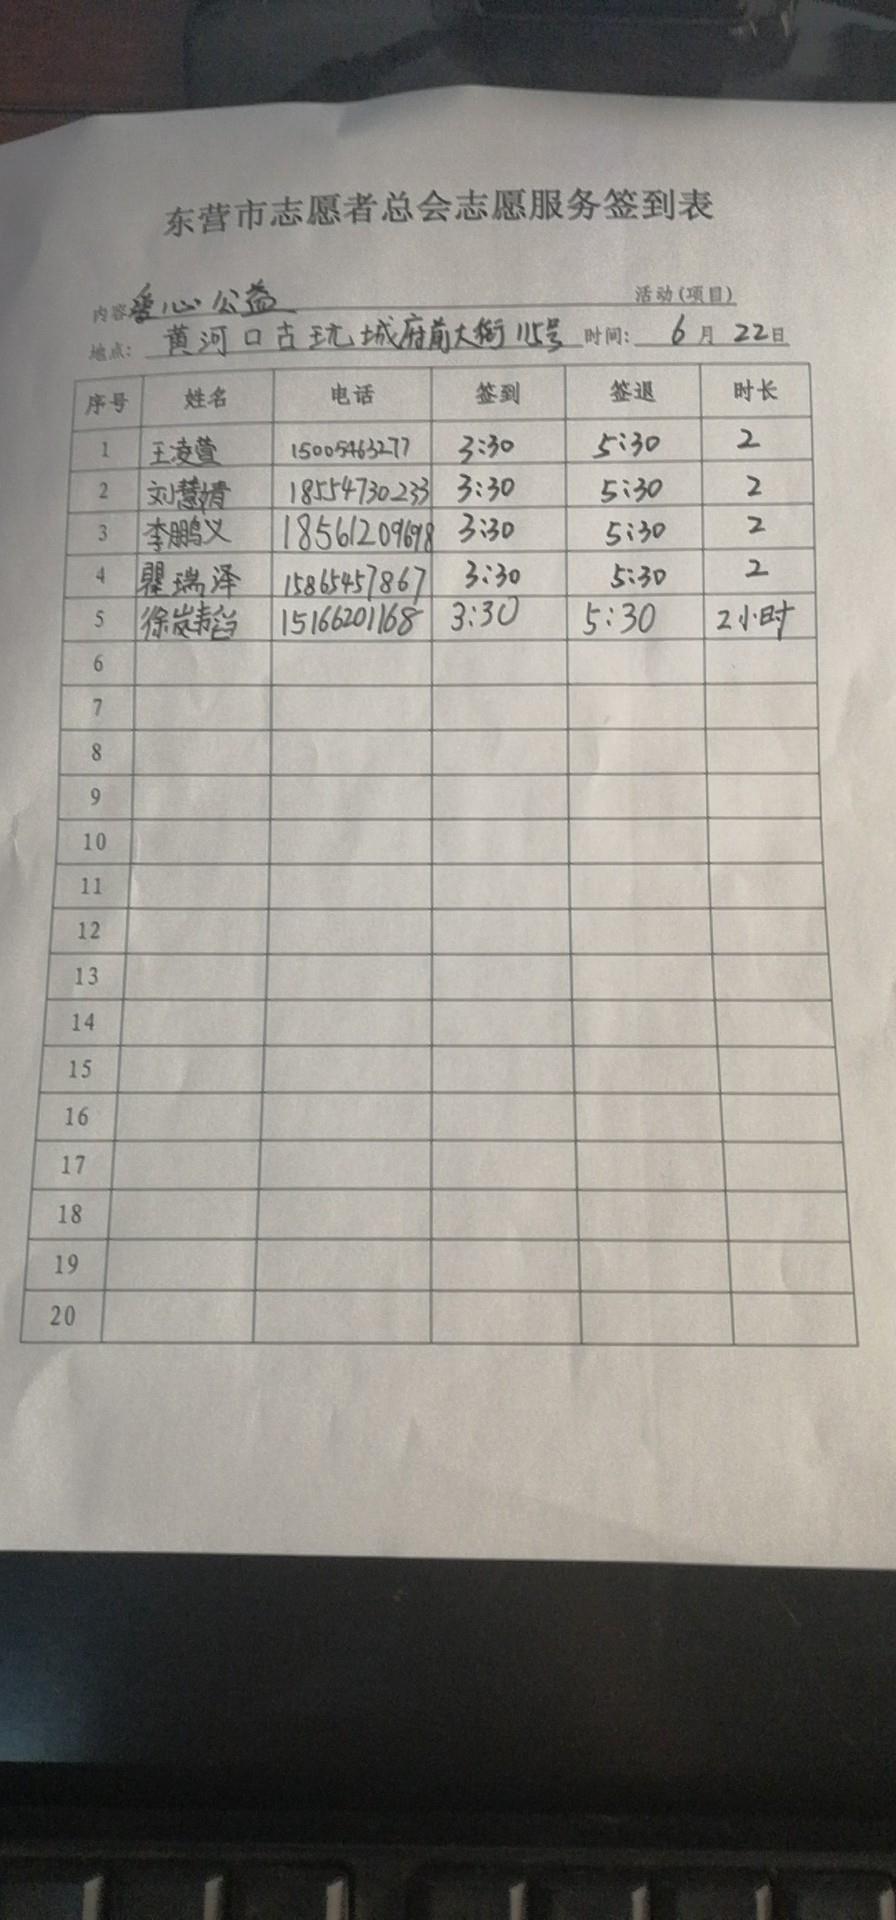 东营市志愿者总会志愿服务签到表
内容 爱心公益 活动(项目)
地点: 黄河口古玩城府前大街115号 时间: 6月22日
序号 姓名 电话 签到 签退 时长
1 王凌萱 15005463277 3:30 5:30 2
2 刘慧婧 18554730233 3:30 5:30 2
3 李鹏义 18561209698 3:30 5:30 2
4 瞿瑞泽 15865457867 3:30 5:30 2
5 徐 15166201168 3:30 5:30 2小时
6
7
8
9
10
11
12
13
14
15
16
17
18
19
20